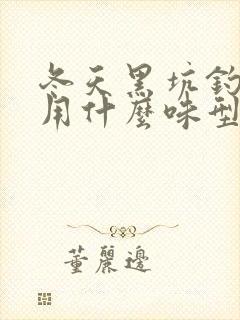 冬天黑坑钓
用什麼味型
董麗邊